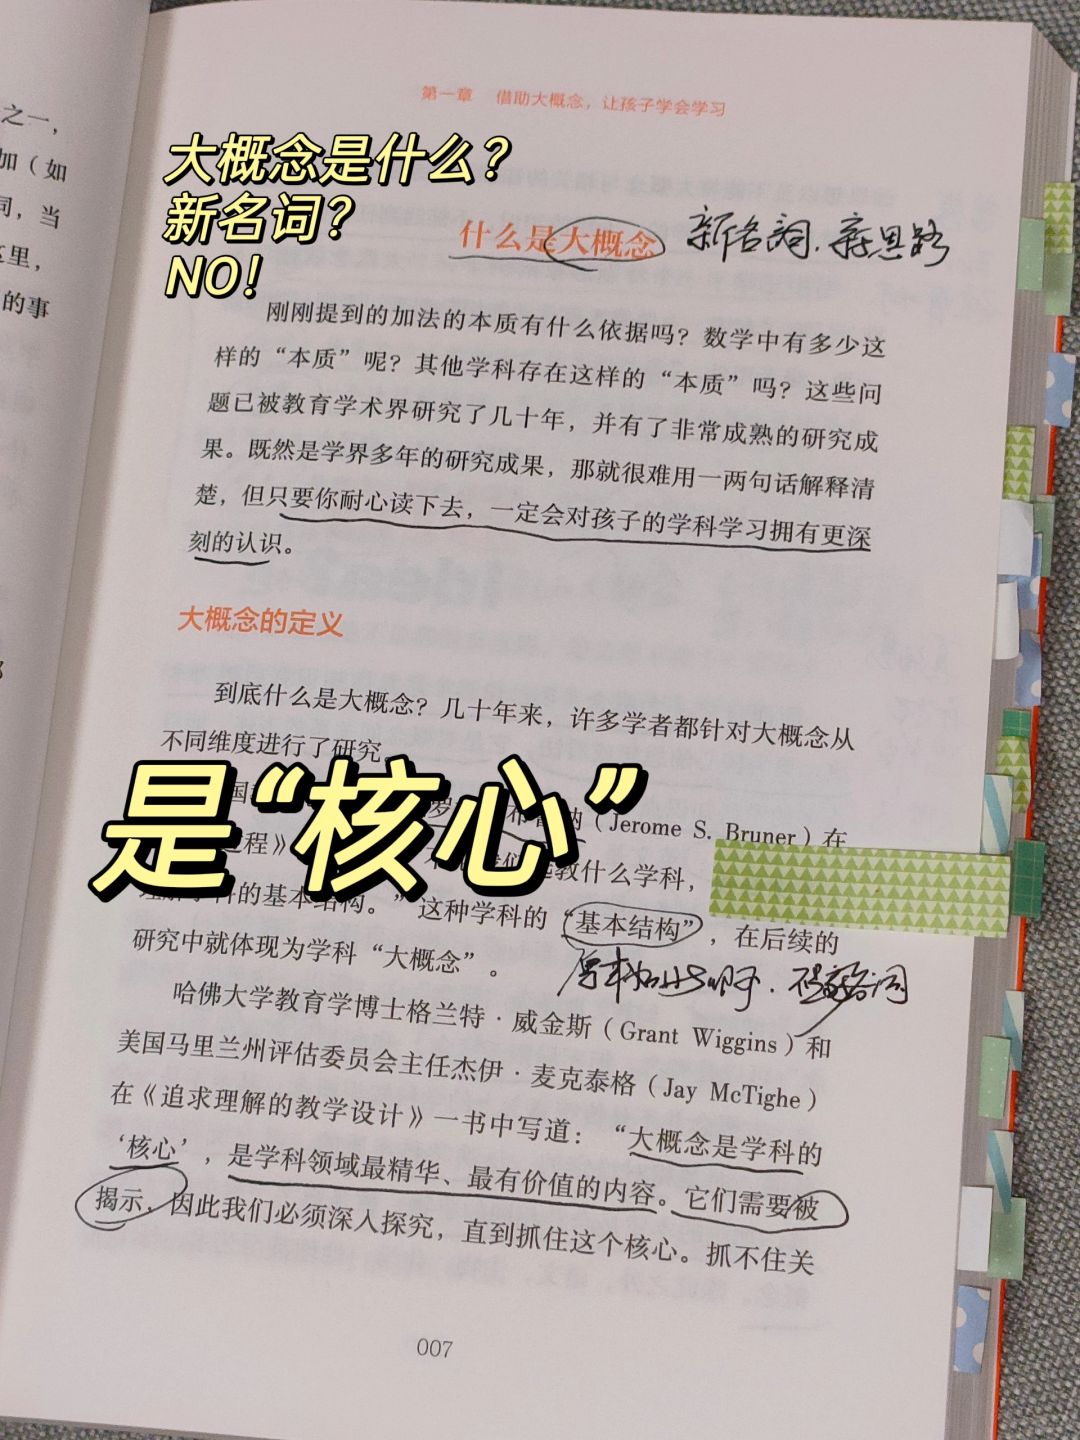 之一，
加（如
词，当
这里，
的事
第一章 借助大概念，让孩子学会学习
大概念是什么？
新名词？
NO！
什么是大概念
新名词、新思路
刚刚提到的加法的本质有什么依据吗？数学中有多少这
样的“本质”呢？其他学科存在这样的“本质”吗？这些问
题已被教育学术界研究了几十年，并有了非常成熟的研究成
果。既然是学界多年的研究成果，那就很难用一两句话解释清
楚，但只要你耐心读下去，一定会对孩子的学科学习拥有更深
刻的认识。
大概念的定义
到底什么是大概念？几十年来，许多学者都针对大概念从
不同维度进行了研究。
是“核心”
（Jerome S. Bruner）在
过程》 教什么学科，
的基本结构。”这种学科的“基本结构”，在后续的
研究中就体现为学科“大概念”。
哈佛大学教育学博士格兰特·威金斯（Grant Wiggins）和
美国马里兰州评估委员会主任杰伊·麦克泰格（Jay McTighe）
在《追求理解的教学设计》一书中写道：“大概念是学科的
‘核心’，是学科领域最精华、最有价值的内容。它们需要被
揭示，因此我们必须深入探究，直到抓住这个核心。抓不住关
007